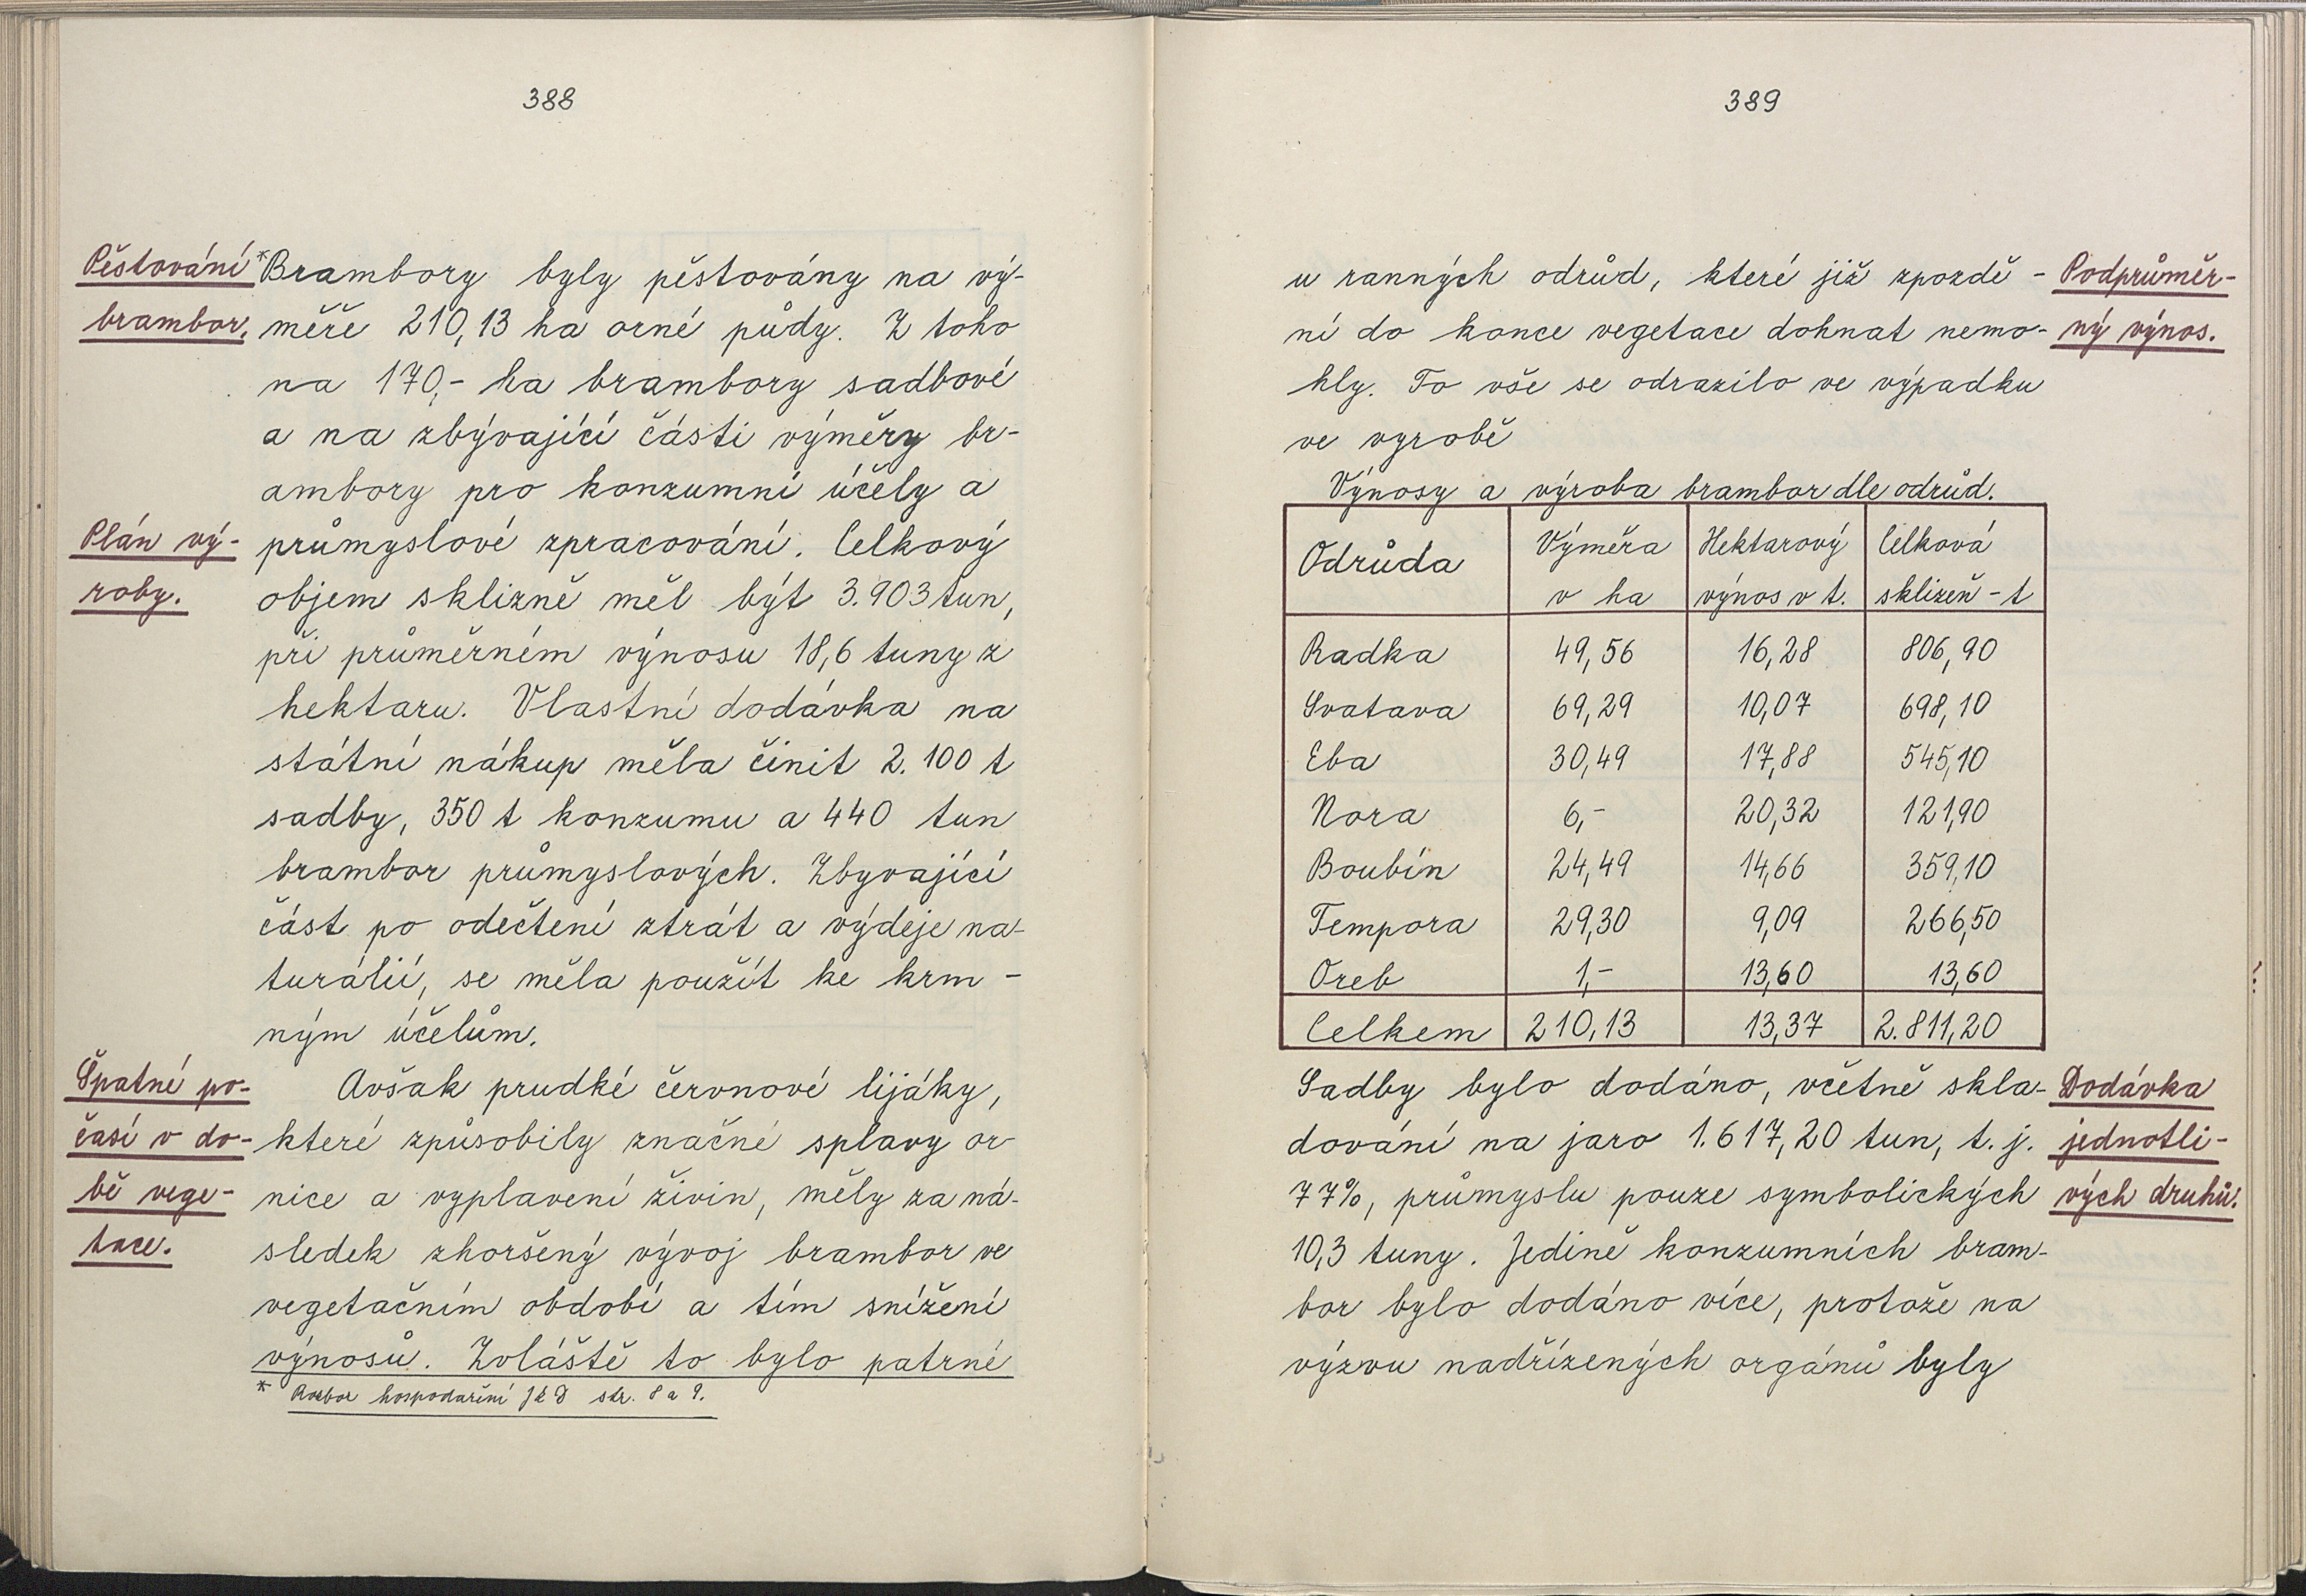 388
Pěstování
brambor.
*Brambory byly pěstovány na vý-
měře 210,13 ha orné půdy. Z toho
na 170,- ha brambory sadbové
a na zbývající části výměry br-
ambory pro konzumní účely a
Plán vý-
roby.
průmyslové zpracování. Celkový
objem sklizně měl být 3.903 tun,
při průměrném výnosu 18,6 tuny z
hektaru. Vlastní dodávka na
státní nákup měla činit 2.100 t
sadby, 350 t konzumu a 440 tun
brambor průmyslových. Zbyvající
část po odečtení ztrát a výdeje na-
turálií, se měla použít ke krm-
ným účelům.
Špatné po-
časí v do-
bě vege-
tace.
Avšak prudké červnové lijáky,
které způsobily značné splavy or-
nice a vyplavení živin, měly za ná-
sledek zhoršený vývoj brambor ve
vegetačním období a tím snížení
výnosů. Zvláště to bylo patrné
* Rozbor hospodaření JZD str. 8 a 9.
389
u ranných odrůd, které již zpozdě-
ní do konce vegetace dohnat nemo-
hly. To vše se odrazilo ve výpadku
ve vyrobě
Podprůměr-
ný výnos.
Výnosy a výroba brambor dle odrůd.
Odrůda | Výměra v ha | Hektarový výnos v t. | Celková sklizeň - t
Radka 49,56 16,28 806,90
Svatava 69,29 10,07 698,10
Eba 30,49 17,88 545,10
Nora 6,- 20,32 121,90
Boubín 24,49 14,66 359,10
Tempora 29,30 9,09 266,50
Oreb 1,- 13,60 13,60
Celkem 210,13 13,37 2.811,20
Sadby bylo dodáno, včetně skla-
dování na jaro 1.617,20 tun, t.j.
77%, průmyslu pouze symbolických
10,3 tuny. Jedině konzumních bram-
bor bylo dodáno více, protože na
výzvu nadřízených orgánů byly
Dodávka
jednotli-
vých druhů.